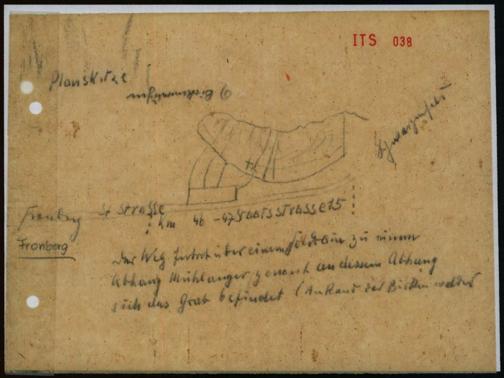 ITS 038
Planskizze
Schwarzenfeld
Fronberg St Strasse
km 46 - 47 Staatsstrasse 15
Fronberg
Der Weg führt über einem Feldrain zu einem
Abhang Mühlanger genannt an dessem Abhang
sich das Grab befindet (Am Rand des Birkenwaldes